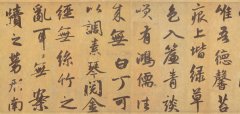 惟吾德馨苔
痕上堦綠草
色入簾青談
咲有鴻儒往
來無白丁可
以調素琴閱金
經無絲竹之
亂耳無案
牘之勞形南